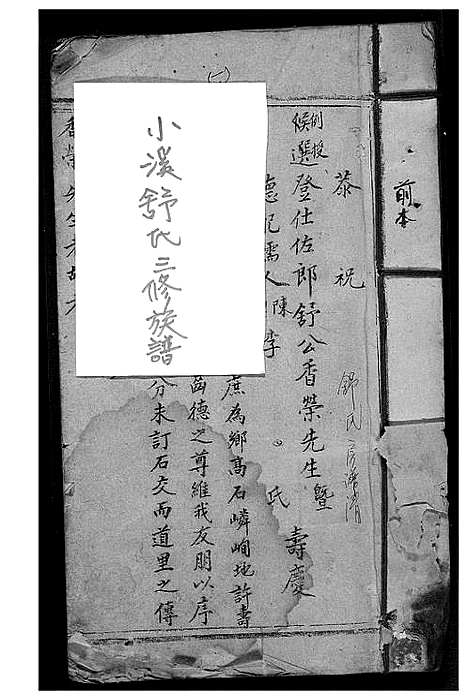 前本
恭祝
舒氏
例授
候選登仕佐郎舒公香榮先生暨
德配孺人陳李氏壽慶
庶為鄉高石嶙峋地許壽
齒德之尊維我友朋以序
分未訂石交而道里之傳
小溪舒氏三修族譜
(一)